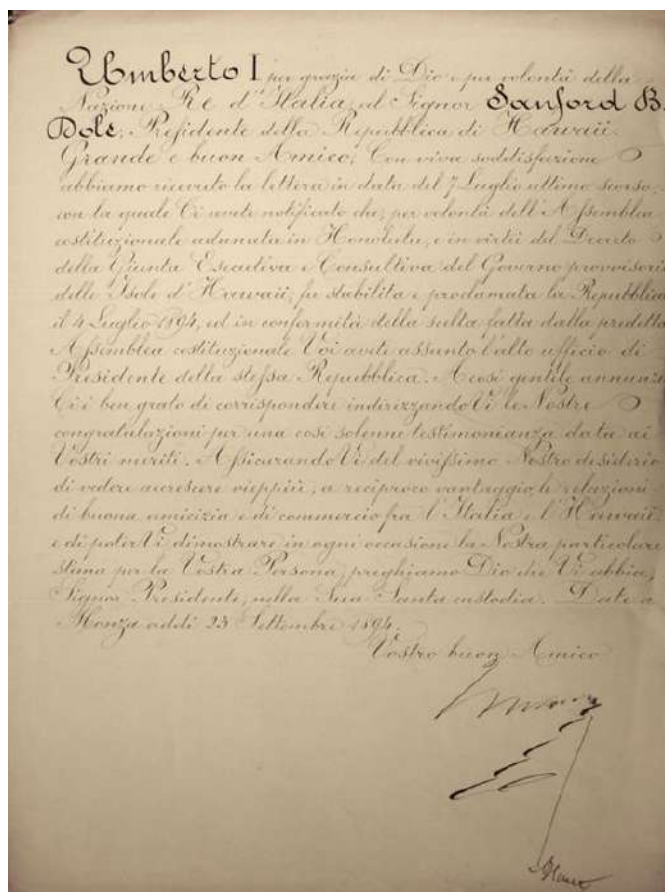 Umberto I per grazia di Dio e per volontà della
Nazione Re d'Italia, al Signor Sanford B.
Dole, Presidente della Repubblica di Hawaii.
Grande e buon Amico, Con viva soddisfazione
abbiamo ricevuto la lettera in data del 7 Luglio ultimo scorso,
con la quale Ci avete notificato che, per volontà dell'Assemblea
costituzionale adunata in Honolulu, e in virtù del Decreto
della Giunta Esecutiva e Consultiva del Governo provvisorio
delle Isole d'Hawaii, fu stabilita e proclamata la Repubblica
il 4 Luglio 1894, ed in conformità della scelta fatta dalla predetta
Assemblea costituzionale Voi avete assunto l'alto ufficio di
Presidente della stessa Repubblica. A così gentile annunzio
Ci è ben grato di corrispondere indirizzandoVi le Nostre
congratulazioni per una così solenne testimonianza data ai
Vostri meriti. AssicurandoVi del vivissimo Nostro desiderio
di vedere accrescere vieppiù, a reciproco vantaggio, le relazioni
di buona amicizia e di commercio fra l'Italia e l'Hawaii,
e di poterVi dimostrare in ogni occasione la Nostra particolare
stima per la Vostra Persona, preghiamo Dio che Vi abbia,
Signor Presidente, nella Sua Santa custodia. Data a
Monza addì 23 Settembre 1894.
Vostro buon Amico